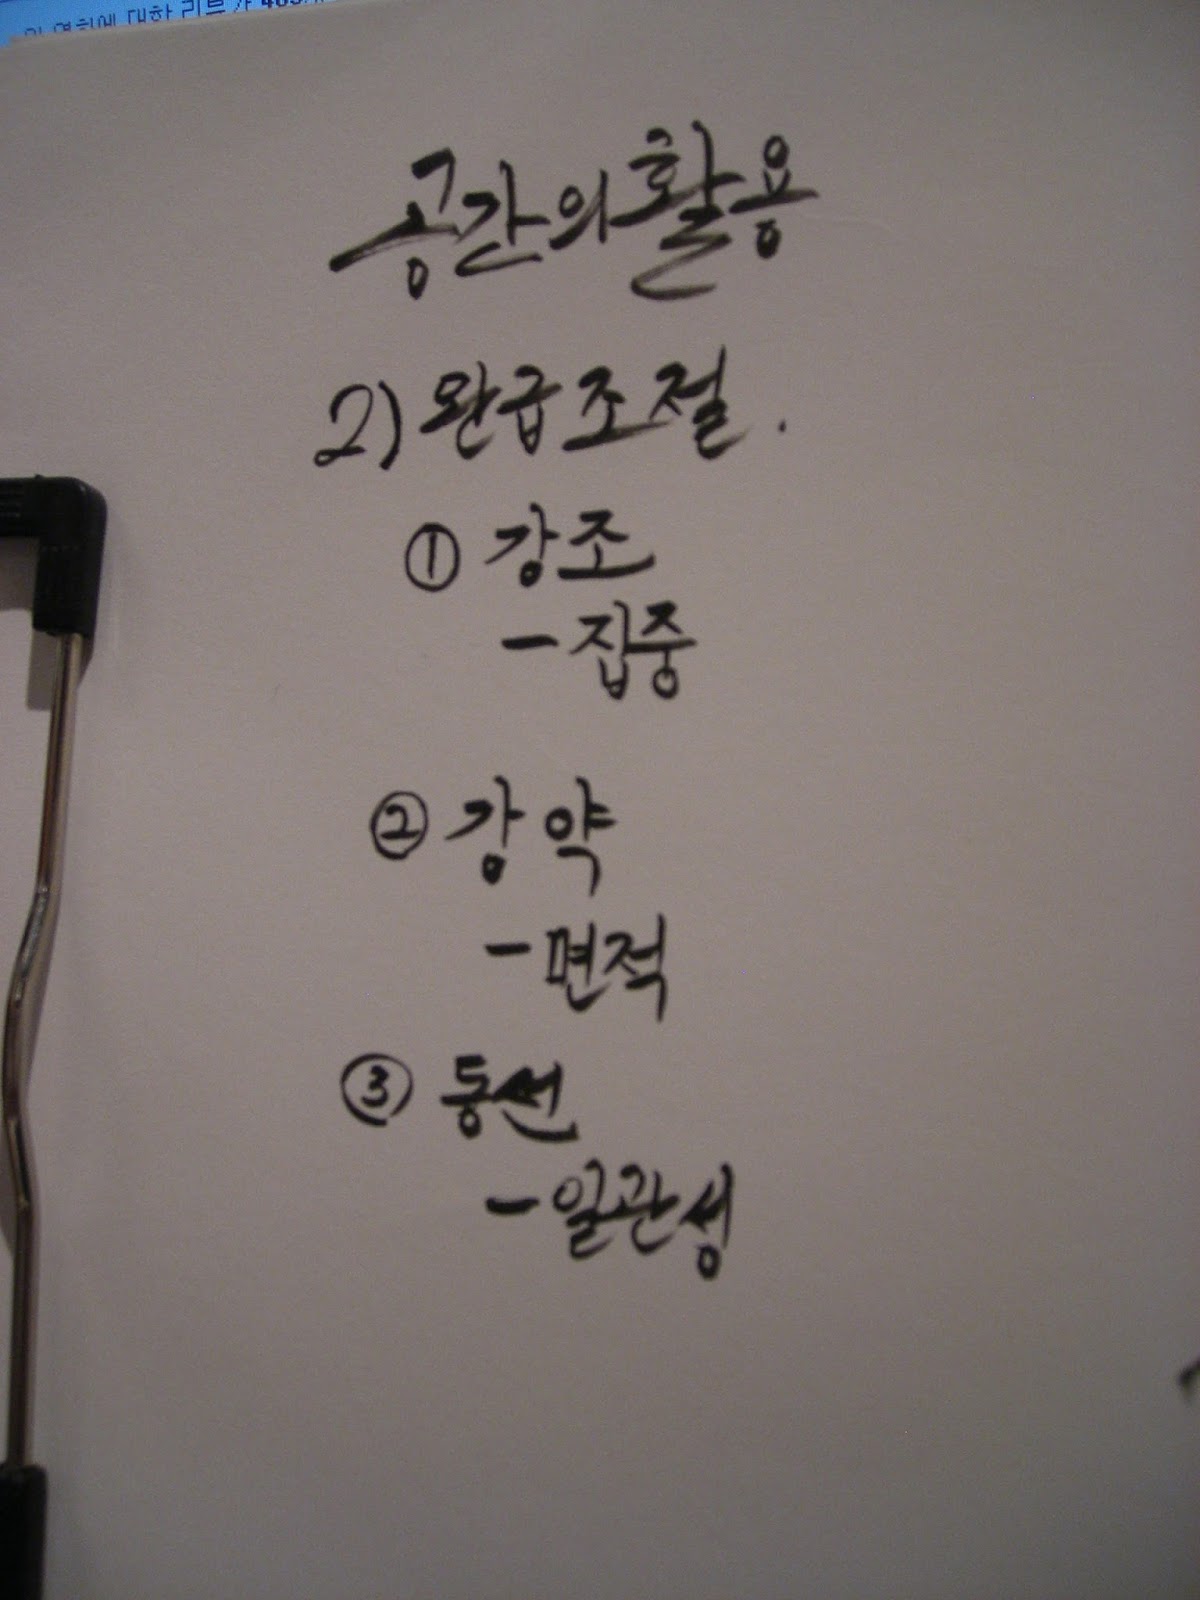 대한 리뷰가
공간의활용
2) 완급조절.
① 강조
- 집중
② 강약
- 면적
③ 동선
- 일관성